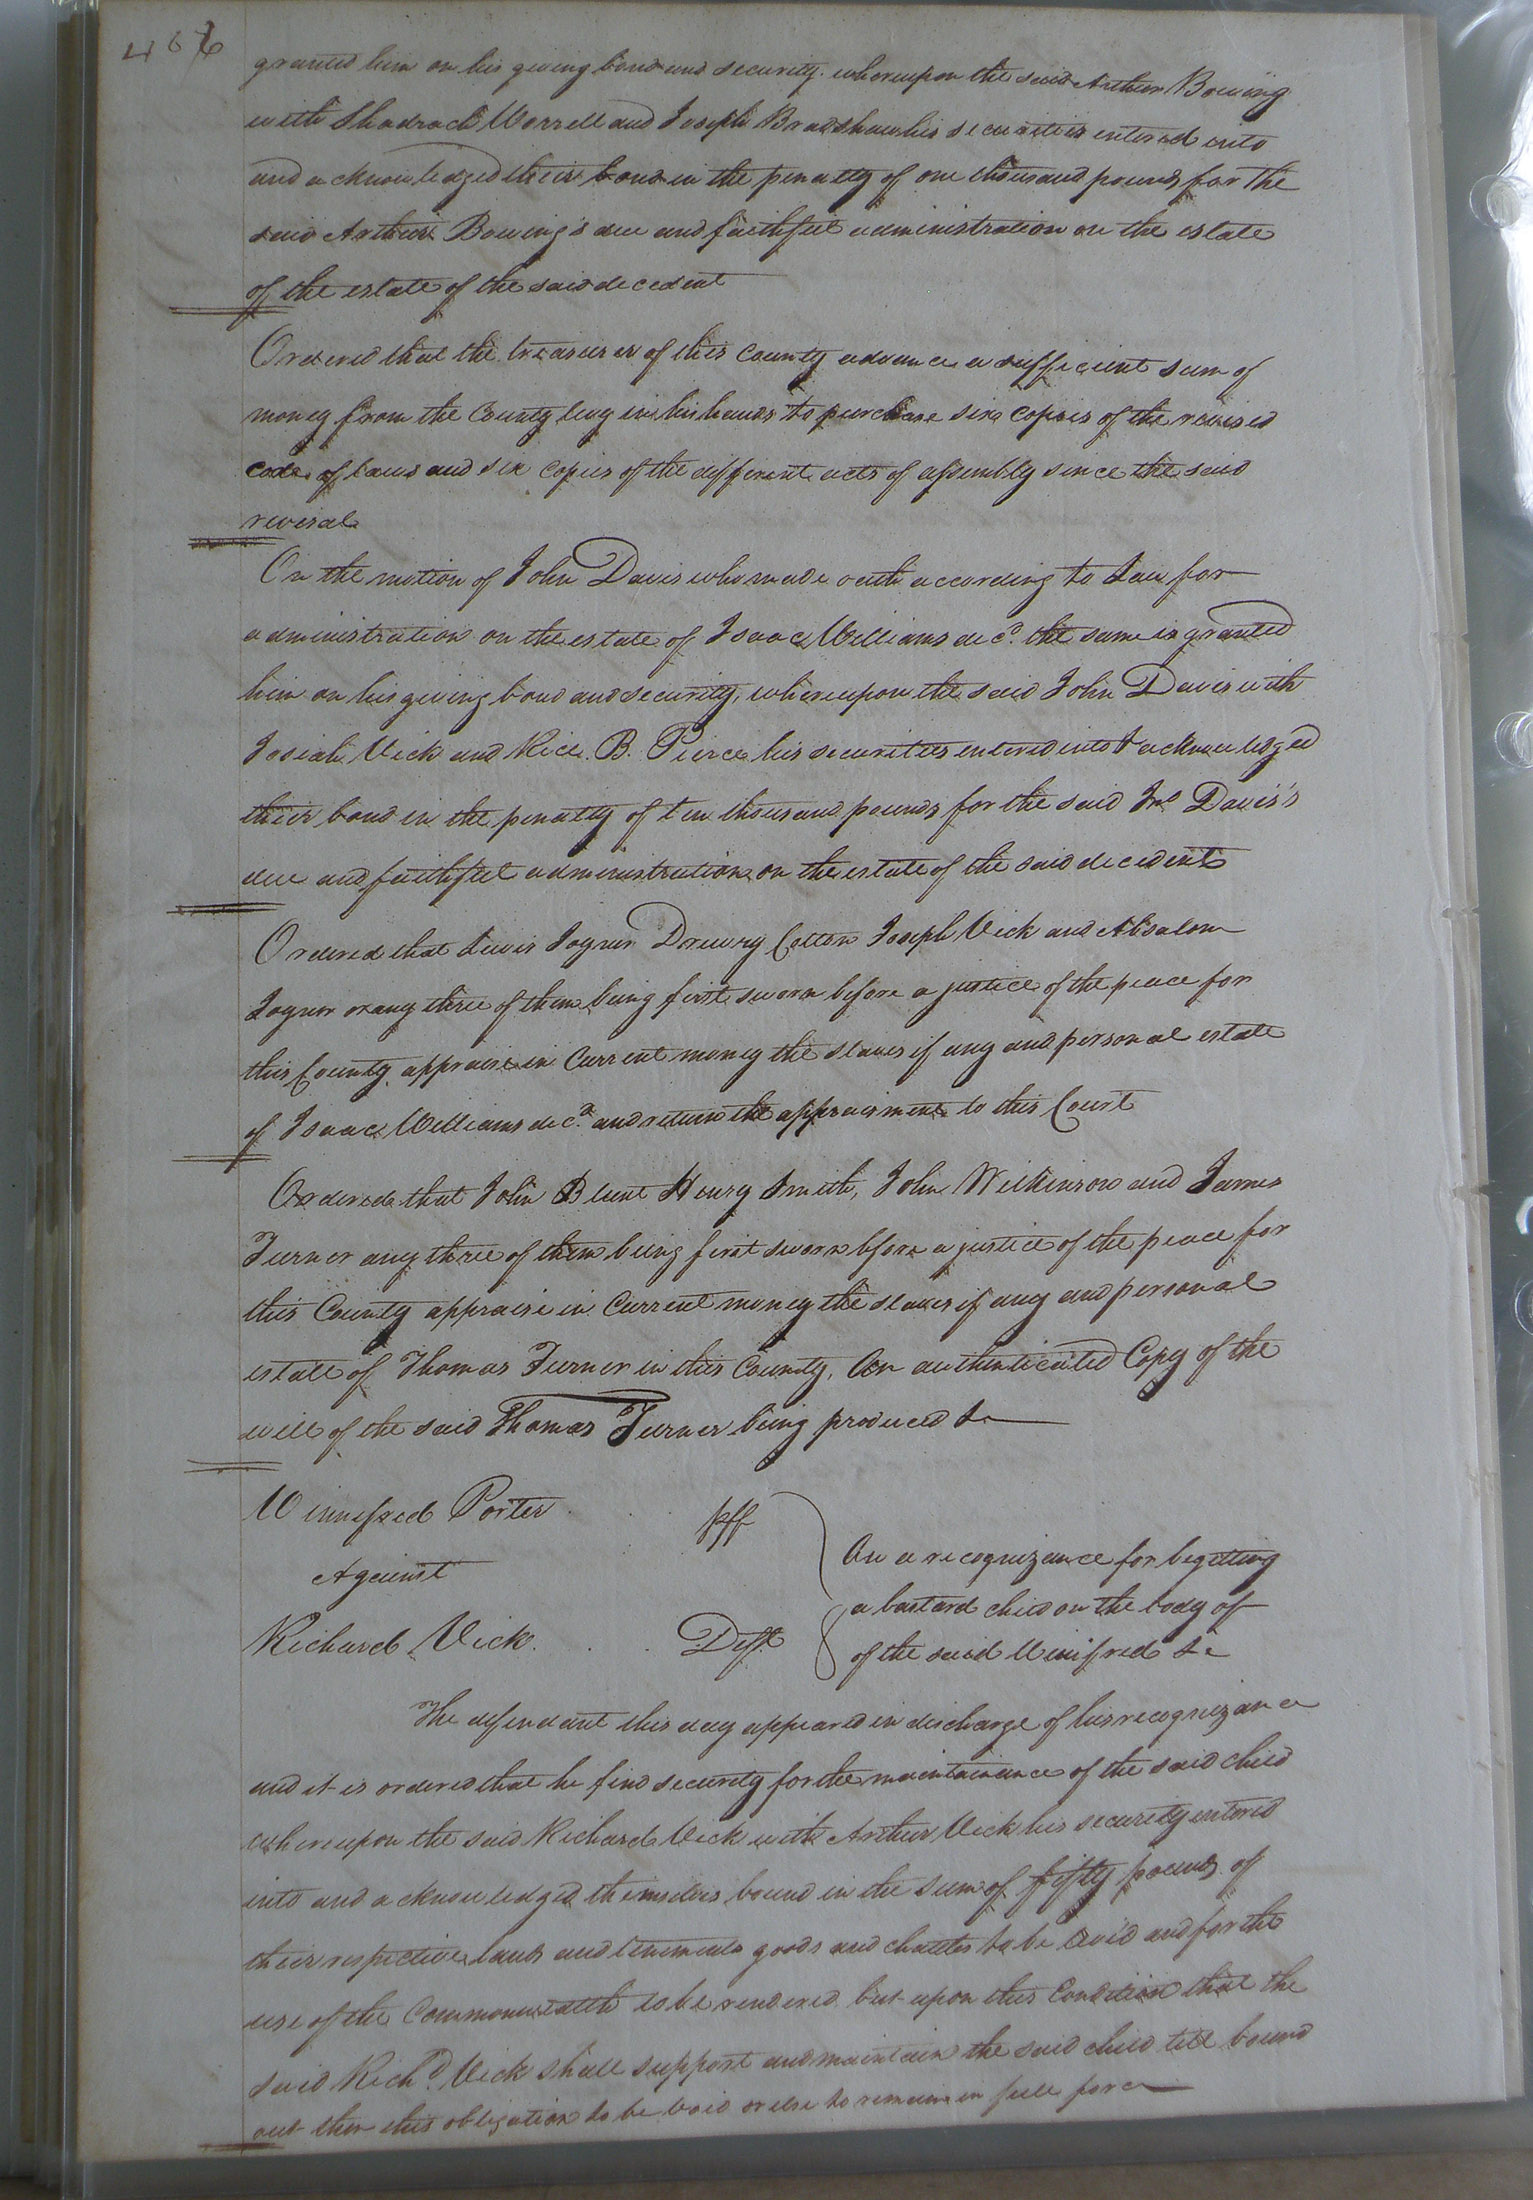 466
granted him on his giving bond and security. whereupon the said Arthur Bowing
with Shadrach Worrell and Joseph Bradshaw his securities entered into
and acknowledged their bond in the penalty of one thousand pounds for the
said Arthur Bowing's due and faithful administration on the estate
of the estate of the said decedent
Ordered that the treasurer of this county advance a sufficient sum of
money from the County levy in his hands to purchase six copies of the revised
code of laws and six copies of the different acts of assembly since the said
revisal
On the motion of John Davis who made oath according to Law for
administration on the estate of Isaac Williams decd. the same is granted
him on his giving bond and security, whereupon the said John Davis with
Josiah Vick and Rice B. Pierce his securities entered into & acknowledged
their bond in the penalty of ten thousand pounds for the said Jno Davis's
due and faithful administration on the estate of the said decedent
Ordered that Lewis Joyner Drewry Cotton Joseph Vick and Absalom
Joyner or any three of them being first sworn before a justice of the peace for
this County appraise in Current money the slaves if any and personal estate
of Isaac Williams decd. and return the appraisment to this Court
Ordered that John Blunt Henry Smith, John Wilkinson and James
Turner any three of them being first sworn bfore a justice of the peace for
this County appraise in Current money the slaves if any and personal
estate of Thomas Turner in this County, An authenticated Copy of the
will of the said Thomas Turner being produced &c
Winnefred Porter . . plff
Against
Richard Vick. . . Deft
On a recognizance for begetting
a bastard child on the body of
of the said Winifred &c
The defendant this day appeared in discharge of his recognizance
and it is ordered that he find security for the maintainance of the said child
whereupon the said Richard Vick with Arthur Vick his security entered
into and acknowledged themselves bound in the sum of fifty pounds of
their respective lands and tenements goods and chattles to be levied and for the
use of the Commonwealth to be rendered but upon this Condition that the
said Richd. Vick shall support and maintain the said child till bound
out then this obligation to be void or else to remain in full force